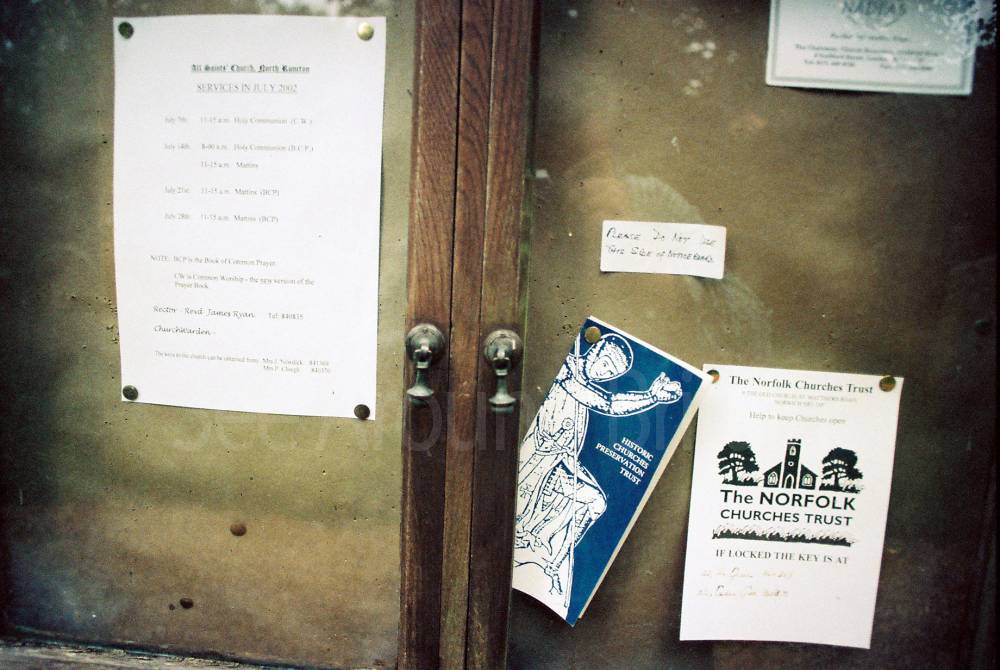 All Saints' Church, North Runcton
SERVICES IN JULY 2002
July 7th: 11-15 a.m. Holy Communion (C.W.)
July 14th: 8-00 a.m. Holy Communion (B.C.P.)
11-15 a.m. Mattins
July 21st: 11-15 a.m. Mattins (BCP)
July 28th: 11-15 a.m. Mattins (BCP)
NOTE: BCP is the Book of Common Prayer.
CW is Common Worship - the new version of the
Prayer Book
Rector - Revd James Ryan. Tel: 840835
Churchwarden -
The keys to the church can be obtained from Mrs J. 841369
Mrs P. Clough 840370
NADFAS
PLEASE DO NOT USE
THIS SIDE OF NOTICE BOARD.
HISTORIC
CHURCHES
PRESERVATION
TRUST
The Norfolk Churches Trust
9 THE OLD CHURCH, ST MATTHEWS ROAD,
NORWICH
Help to keep Churches open
The NORFOLK
CHURCHES TRUST
IF LOCKED THE KEY IS AT